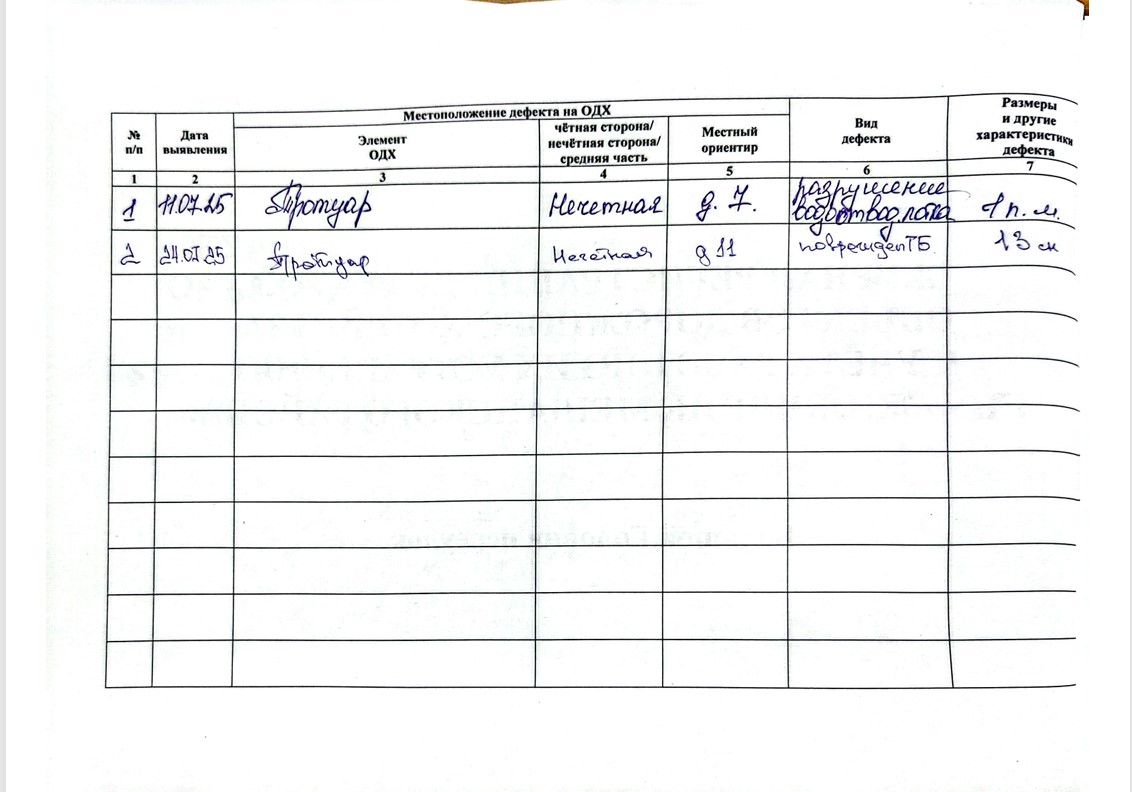 № п/п
Дата выявления
Местоположение дефекта на ОДХ
Элемент ОДХ
чётная сторона/ нечётная сторона/ средняя часть
Местный ориентир
Вид дефекта
Размеры и другие характеристики дефекта
1 2 3 4 5 6 7
1 11.07.25 Тротуар Нечетная д. 7. разрушение водоотвод лотка 1 п. м.
2 24.07.25 Тротуар Нечётная д 11 поврежден ТБ 13